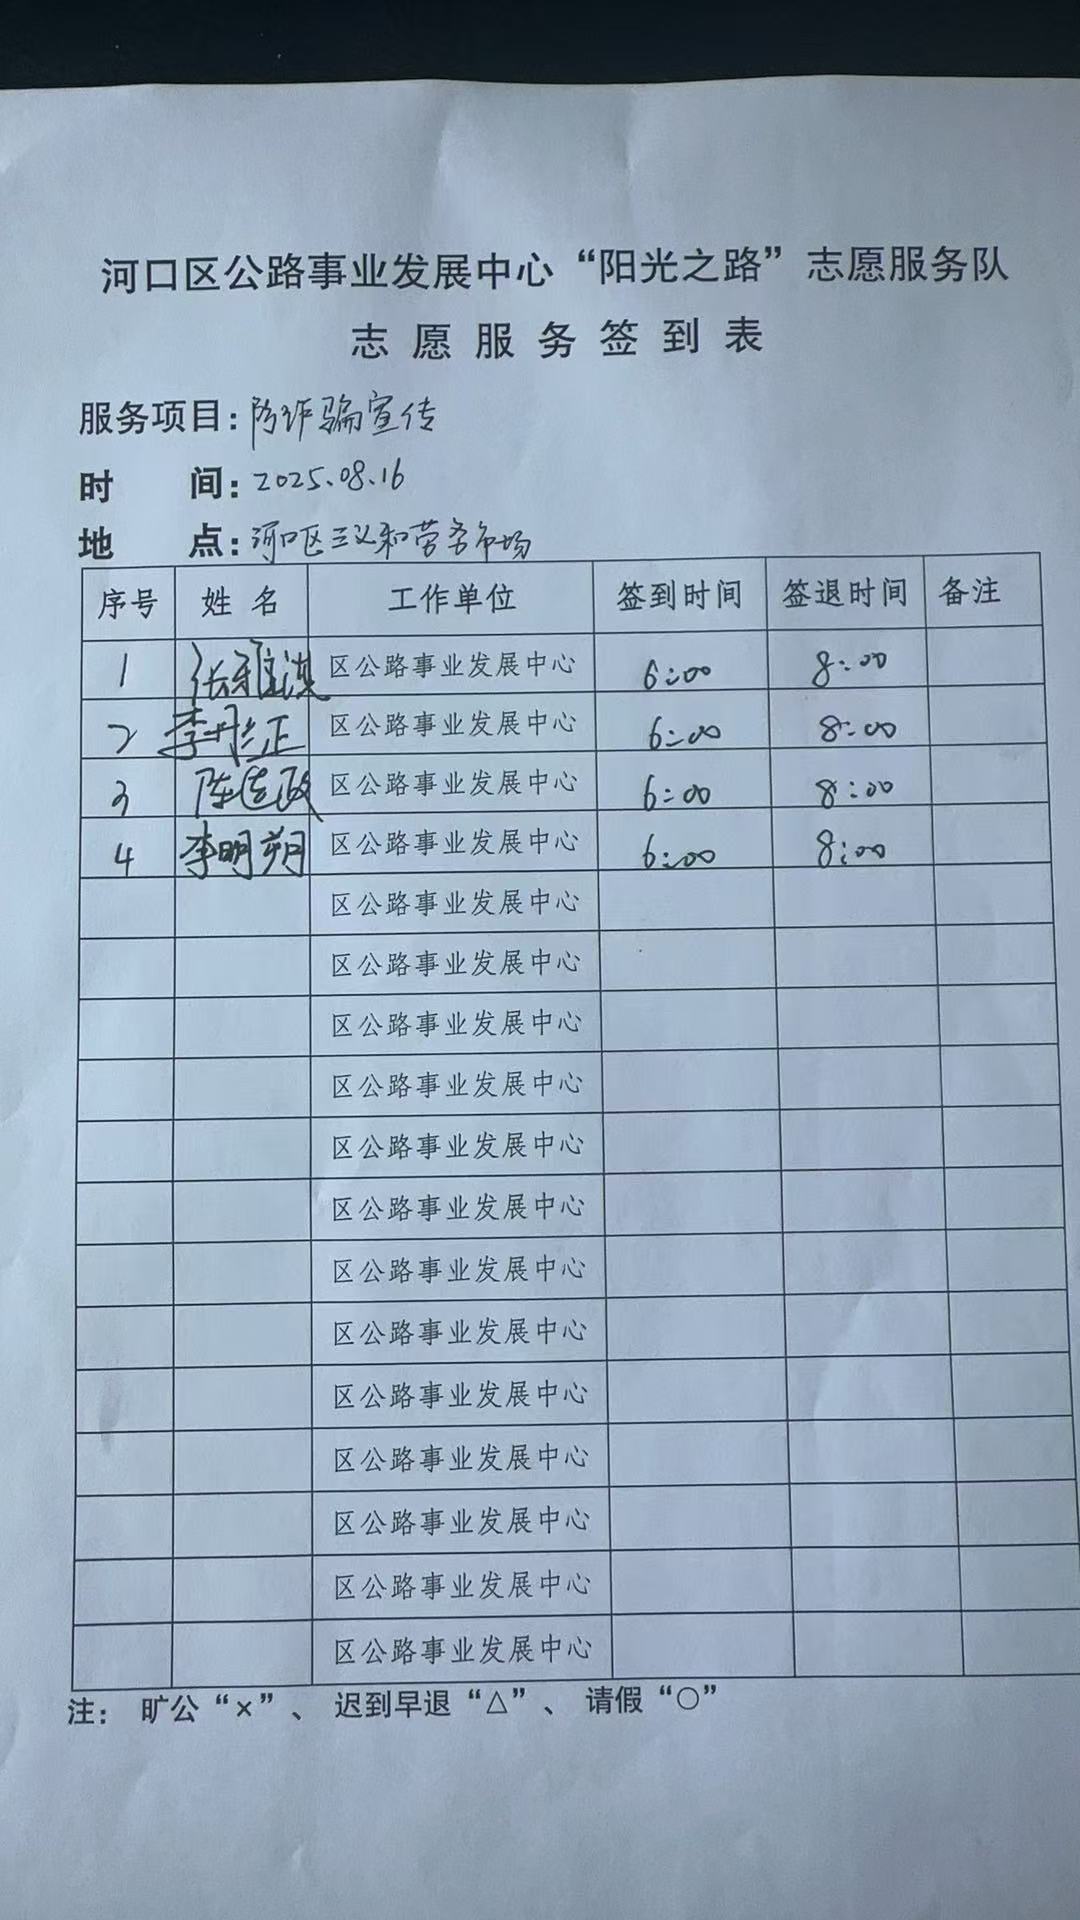 河口区公路事业发展中心“阳光之路”志愿服务队
志愿服务签到表
服务项目：防诈骗宣传
时 间：2025.08.16
地 点：河口区三义和劳务市场
序号 姓名 工作单位 签到时间 签退时间 备注
1 张雅淇 区公路事业发展中心 6:00 8:00
2 李彤正 区公路事业发展中心 6:00 8:00
3 陈建政 区公路事业发展中心 6:00 8:00
4 李明朔 区公路事业发展中心 6:00 8:00
区公路事业发展中心
区公路事业发展中心
区公路事业发展中心
区公路事业发展中心
区公路事业发展中心
区公路事业发展中心
区公路事业发展中心
区公路事业发展中心
区公路事业发展中心
区公路事业发展中心
区公路事业发展中心
区公路事业发展中心
区公路事业发展中心
注： 旷公“×”、 迟到早退“△”、 请假“○”